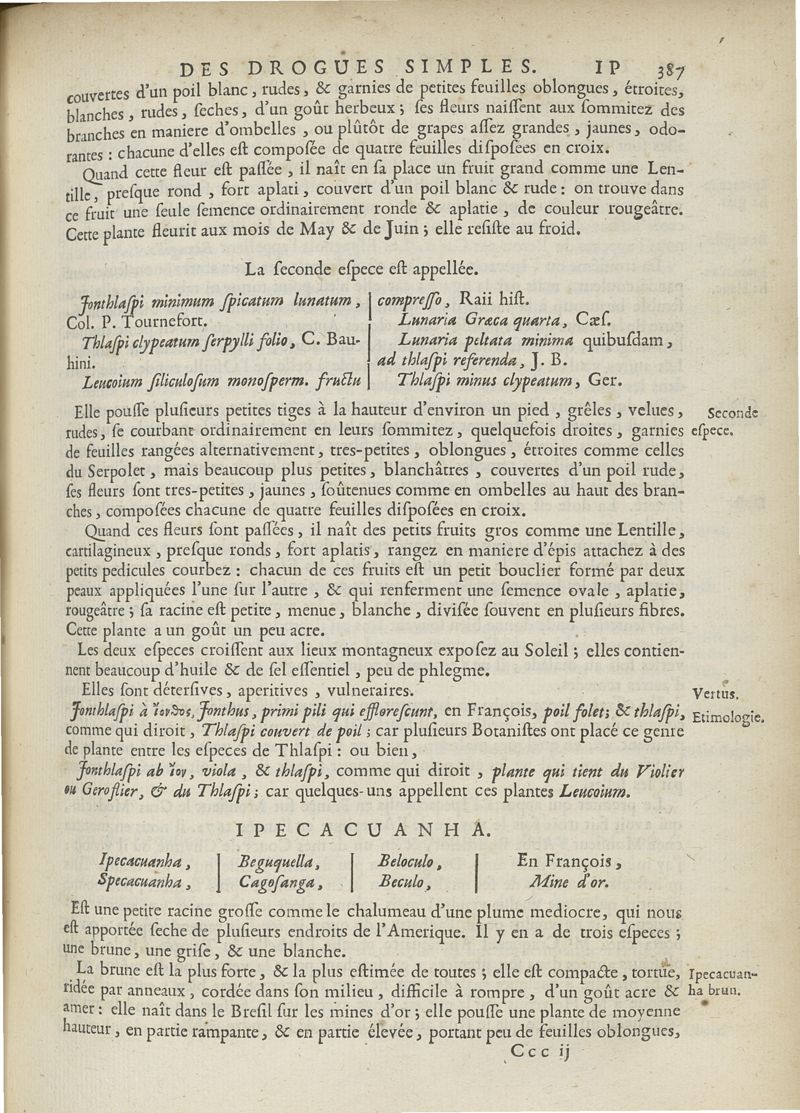 DES DROGUES SIMPLES. IP 387
couvertes d'un poil blanc, rudes, & garnies de petites feuilles oblongues, étroites,
blanches, rudes, ſeches, d'un goût herbeux; ſes fleurs naiſſent aux ſommitez des
branches en maniere d'ombelles, ou plûtôt de grapes aſſez grandes, jaunes, odo-
rantes: chacune d'elles eſt compoſée de quatre feuilles diſpoſées en croix.
Quand cette fleur eſt paſſée, il naît en ſa place un fruit grand comme une Len-
tille, preſque rond, fort aplati, couvert d'un poil blanc & rude: on trouve dans
ce fruit une ſeule ſemence ordinairement ronde & aplatie, de couleur rougeâtre.
Cette plante fleurit aux mois de May & de Juin; elle reſiſte au froid.
La ſeconde eſpece eſt appellée.
Jonthlaſpi minimum ſpicatum lunatum,
Col. P. Tournefort.
Thlaſpi clypeatum ſerpylli folio, C. Bau-
hini.
Leucoium ſiliculoſum monoſperm. fructu
compreſſo, Raii hiſt.
Lunaria Græca quarta, Cæſ.
Lunaria peltata minima quibuſdam,
ad thlaſpi referenda, J. B.
Thlaſpi minus clypeatum, Ger.
Elle pouſſe pluſieurs petites tiges à la hauteur d'environ un pied, grêles, velues, Seconde
rudes, ſe courbant ordinairement en leurs ſommitez, quelquefois droites, garnies eſpece.
de feuilles rangées alternativement, tres-petites, oblongues, étroites comme celles
du Serpolet, mais beaucoup plus petites, blanchâtres, couvertes d'un poil rude,
ſes fleurs ſont tres-petites, jaunes, ſoûtenues comme en ombelles au haut des bran-
ches, compoſées chacune de quatre feuilles diſpoſées en croix.
Quand ces fleurs ſont paſſées, il naît des petits fruits gros comme une Lentille,
cartilagineux, preſque ronds, fort aplatis, rangez en maniere d'épis attachez à des
petits pedicules courbez: chacun de ces fruits eſt un petit bouclier formé par deux
peaux appliquées l'une ſur l'autre, & qui renferment une ſemence ovale, aplatie,
rougeâtre; ſa racine eſt petite, menue, blanche, diviſée ſouvent en pluſieurs fibres.
Cette plante a un goût un peu acre.
Les deux eſpeces croiſſent aux lieux montagneux expoſez au Soleil; elles contien-
nent beaucoup d'huile & de ſel eſſentiel, peu de phlegme.
Elles ſont déterſives, aperitives, vulneraires. Vertus.
Jonthlaſpi à ἴονθος, Jonthus, primi pili qui effloreſcunt, en François, poil folet; & thlaſpi, Etimologie.
comme qui diroit, Thlaſpi couvert de poil; car pluſieurs Botaniſtes ont placé ce genre
de plante entre les eſpeces de Thlaſpi: ou bien,
Jonthlaſpi ab ἴον, viola, & thlaſpi, comme qui diroit, plante qui tient du Violier
ou Geroflier, & du Thlaſpi; car quelques-uns appellent ces plantes Leucoium.
IPECACUANHA.
Ipecacuanha, Beguquella, Beloculo, En François,
Specacuanha, Cagoſanga, Beculo, Mine d'or.
Eſt une petite racine groſſe comme le chalumeau d'une plume mediocre, qui nous
eſt apportée ſeche de pluſieurs endroits de l'Amerique. Il y en a de trois eſpeces;
une brune, une griſe, & une blanche.
La brune eſt la plus forte, & la plus eſtimée de toutes; elle eſt compacte, tortue, Ipecacuan-
ridée par anneaux, cordée dans ſon milieu, difficile à rompre, d'un goût acre & ha brun.
amer: elle naît dans le Breſil ſur les mines d'or; elle pouſſe une plante de moyenne
hauteur, en partie rampante, & en partie élevée, portant peu de feuilles oblongues,
Ccc ij